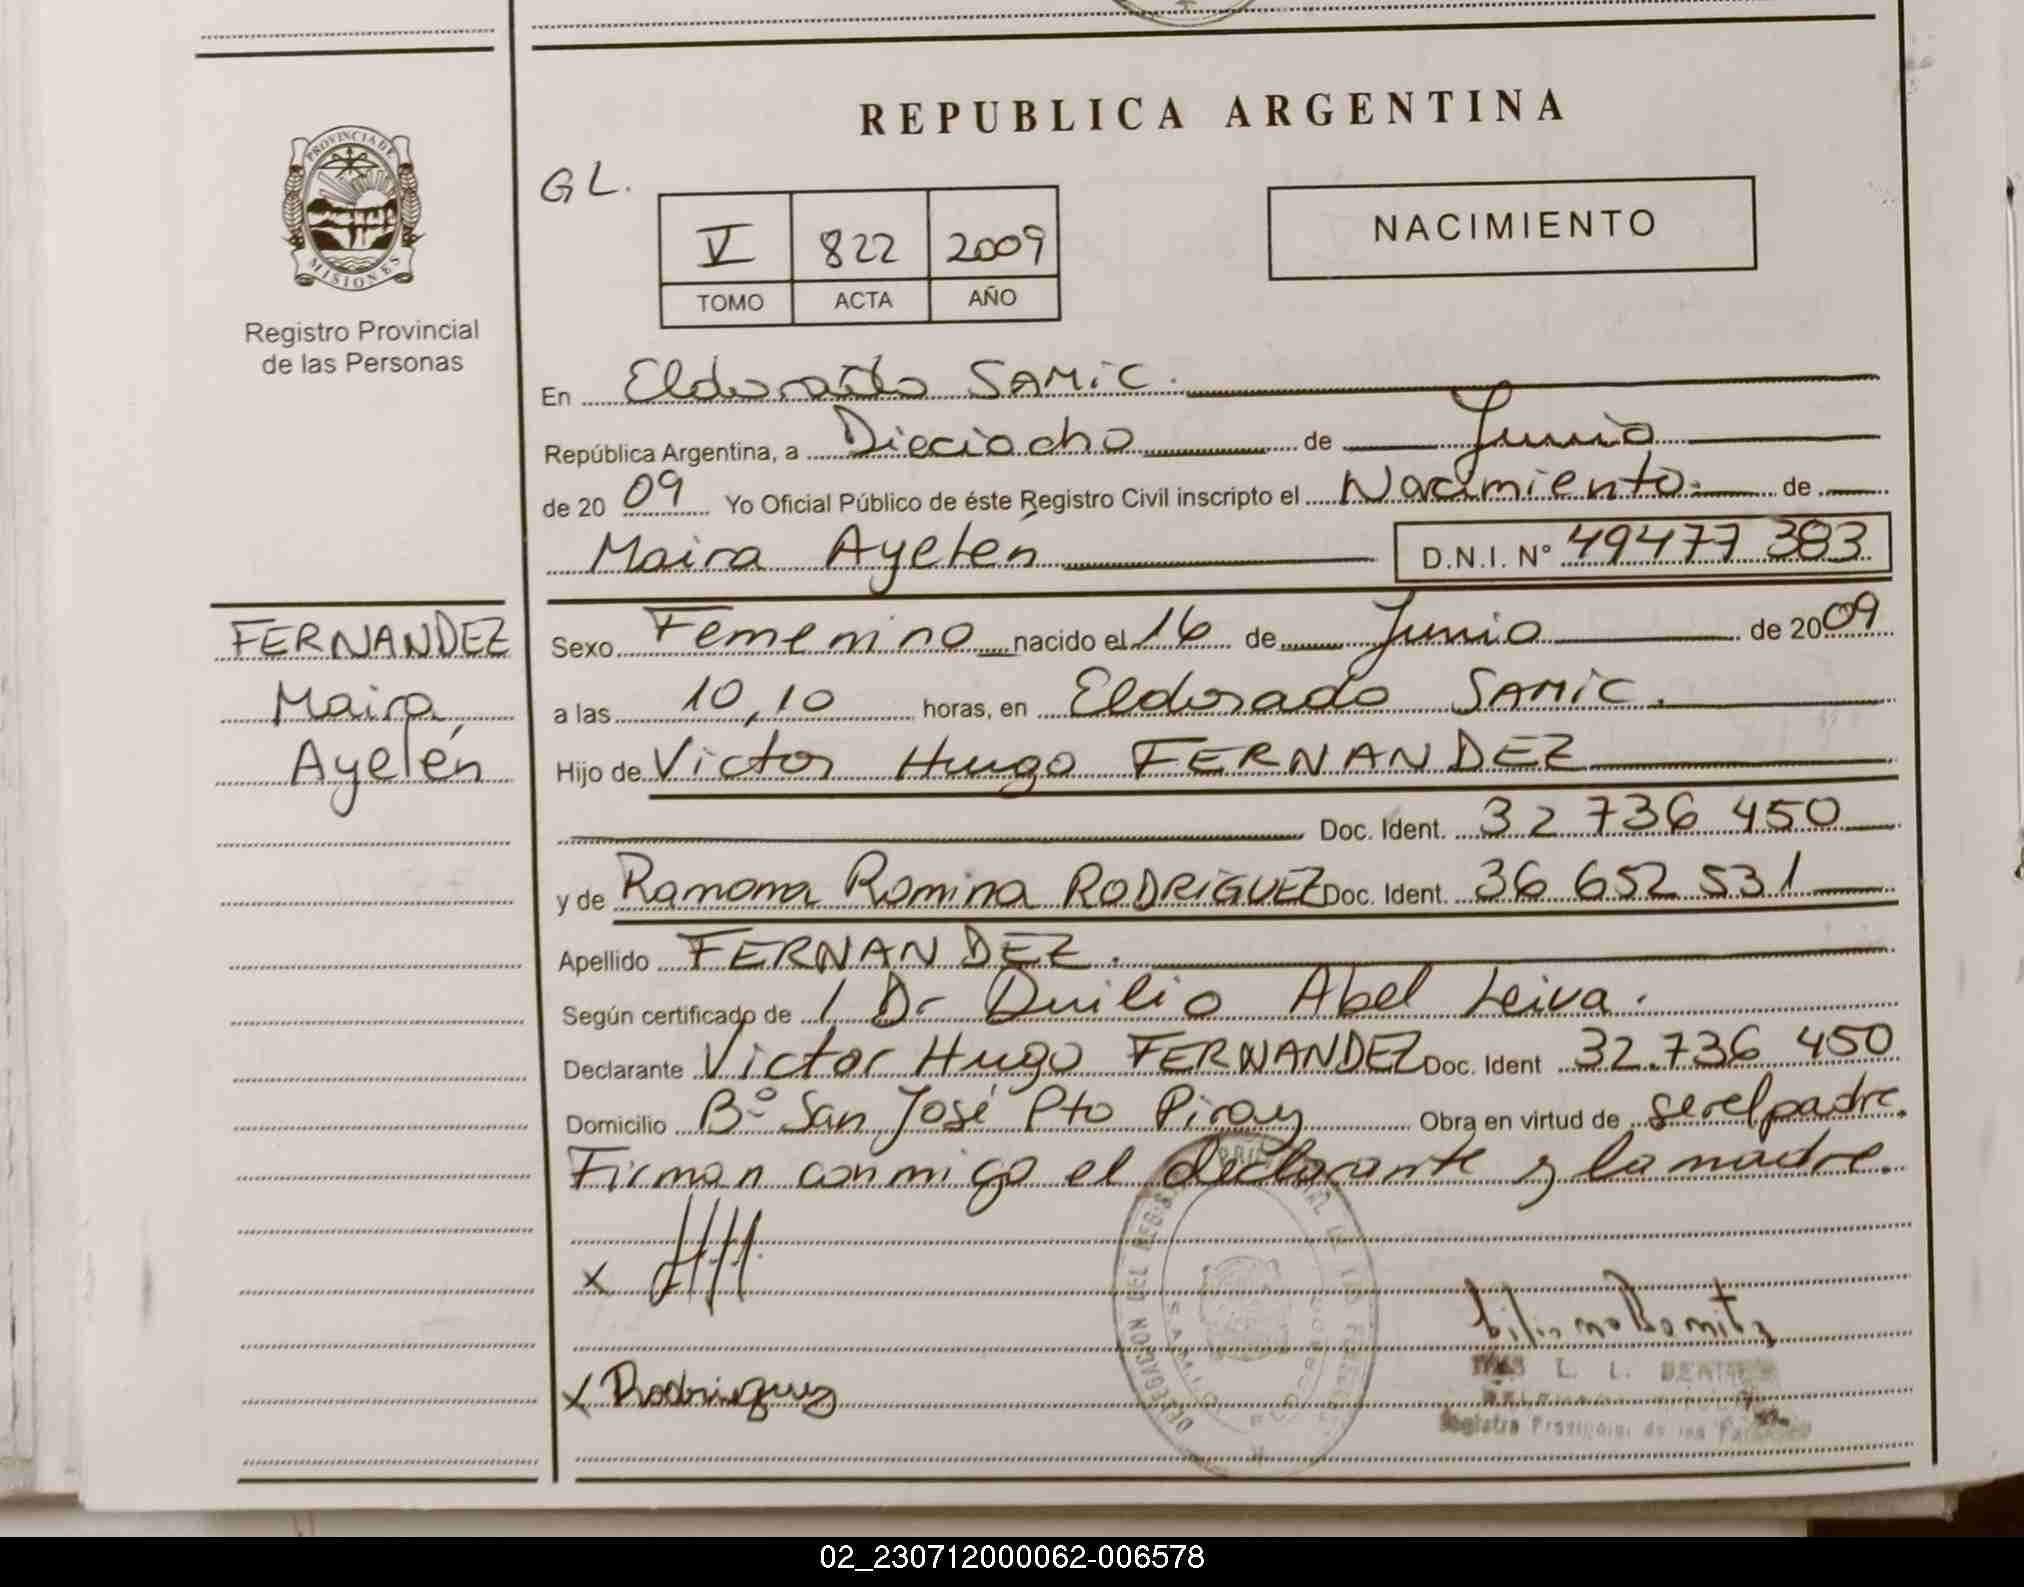 REPUBLICA ARGENTINA
PROVINCIA DE
MISIONES
Registro Provincial
de las Personas
GL.
V 822 2009
TOMO ACTA AÑO
NACIMIENTO
En Eldorado SAMIC.
República Argentina, a Dieciocho de Junio
de 20 09 Yo Oficial Público de éste Registro Civil inscripto el Nacimiento de
Maira Ayelén D.N.I. N° 49477 383
FERNANDEZ
Maira
Ayelén
Sexo Femenino nacido el 16 de Junio de 2009
a las 10,10 horas, en Eldorado SAMIC.
Hijo de Victor Hugo FERNANDEZ
Doc. Ident. 32 736 450
y de Ramona Romina RODRIGUEZ Doc. Ident. 36 652 531
Apellido FERNANDEZ.
Según certificado de / Dr Duilio Abel Leiva.
Declarante Victor Hugo FERNANDEZ Doc. Ident 32.736 450
Domicilio B° San José Pto Piray Obra en virtud de ser el padre.
Firman conmigo el declarante y la madre.
x
x Rodriguez
DELEGACION DEL
L. I.
Registro Provincial de las Personas
02_230712000062-006578